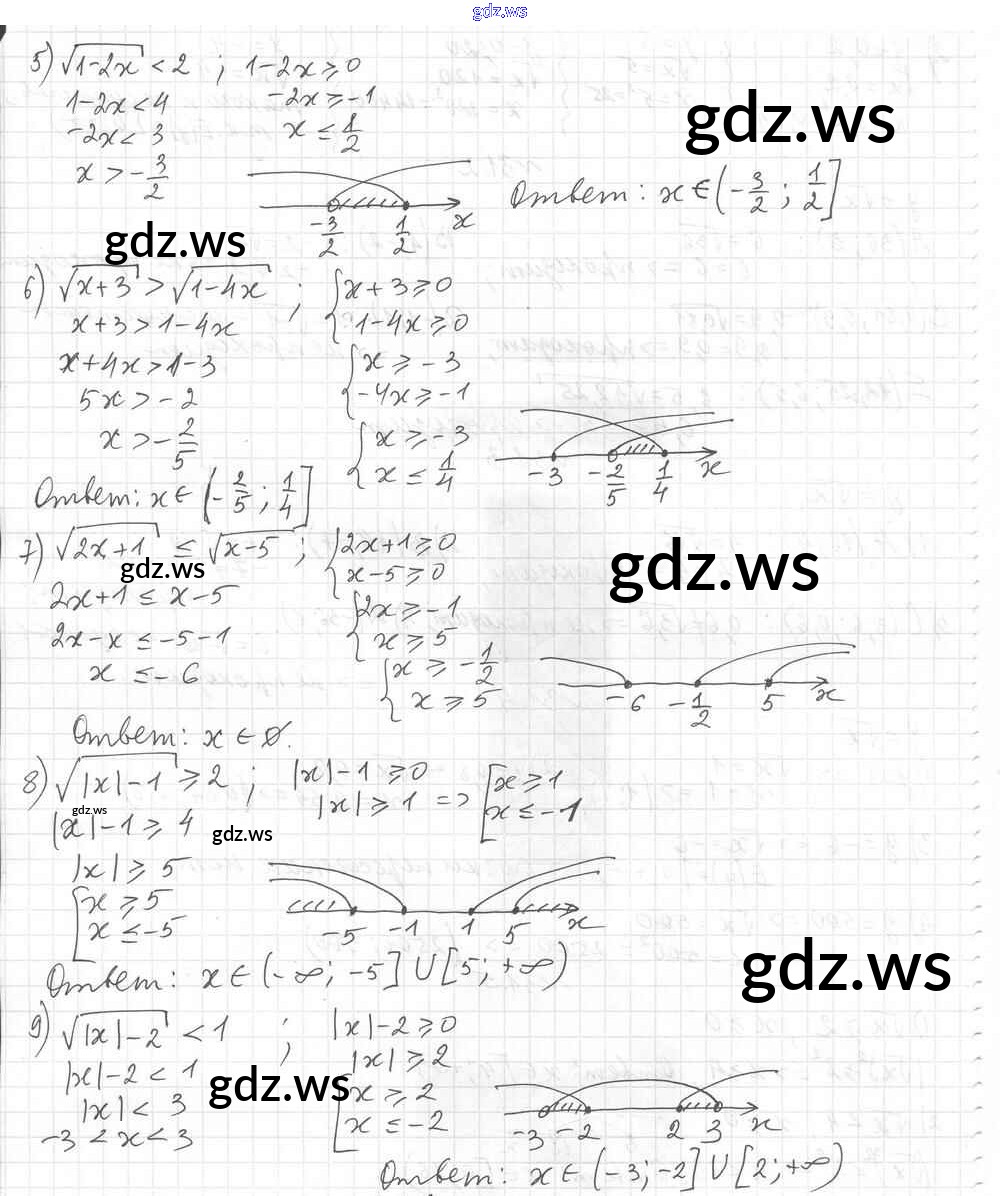 gdz.ws
5) √(1-2x) < 2 ; 1-2x ≥ 0
1-2x < 4 -2x ≥ -1
-2x < 3 x ≤ 1/2
x > -3/2
-3/2 1/2 x
Ответ: x ∈ (-3/2 ; 1/2]
gdz.ws
gdz.ws
6) √(x+3) > √(1-4x) ; { x+3 ≥ 0
x+3 > 1-4x 1-4x ≥ 0
x+4x > 1-3 { x ≥ -3
5x > -2 -4x ≥ -1
x > -2/5 { x ≥ -3
x ≤ 1/4
-3 -2/5 1/4 x
Ответ: x ∈ (-2/5 ; 1/4]
7) √(2x+1) ≤ √(x-5) ; { 2x+1 ≥ 0
gdz.ws x-5 ≥ 0
gdz.ws
2x+1 ≤ x-5 { 2x ≥ -1
2x-x ≤ -5-1 x ≥ 5
x ≤ -6 { x ≥ -1/2
x ≥ 5
-6 -1/2 5 x
Ответ: x ∈ ∅.
8) √(|x|-1) ≥ 2 ; |x|-1 ≥ 0
|x| ≥ 1 => [ x ≥ 1
x ≤ -1
gdz.ws
|x|-1 ≥ 4 gdz.ws
|x| ≥ 5
[ x ≥ 5
x ≤ -5
-5 -1 1 5 x
Ответ: x ∈ (-∞; -5] ∪ [5; +∞)
gdz.ws
9) √(|x|-2) < 1 ; |x|-2 ≥ 0
|x|-2 < 1 |x| ≥ 2
gdz.ws
|x| < 3 [ x ≥ 2
-3 < x < 3 x ≤ -2
-3 -2 2 3 x
Ответ: x ∈ (-3; -2] ∪ [2; +∞)